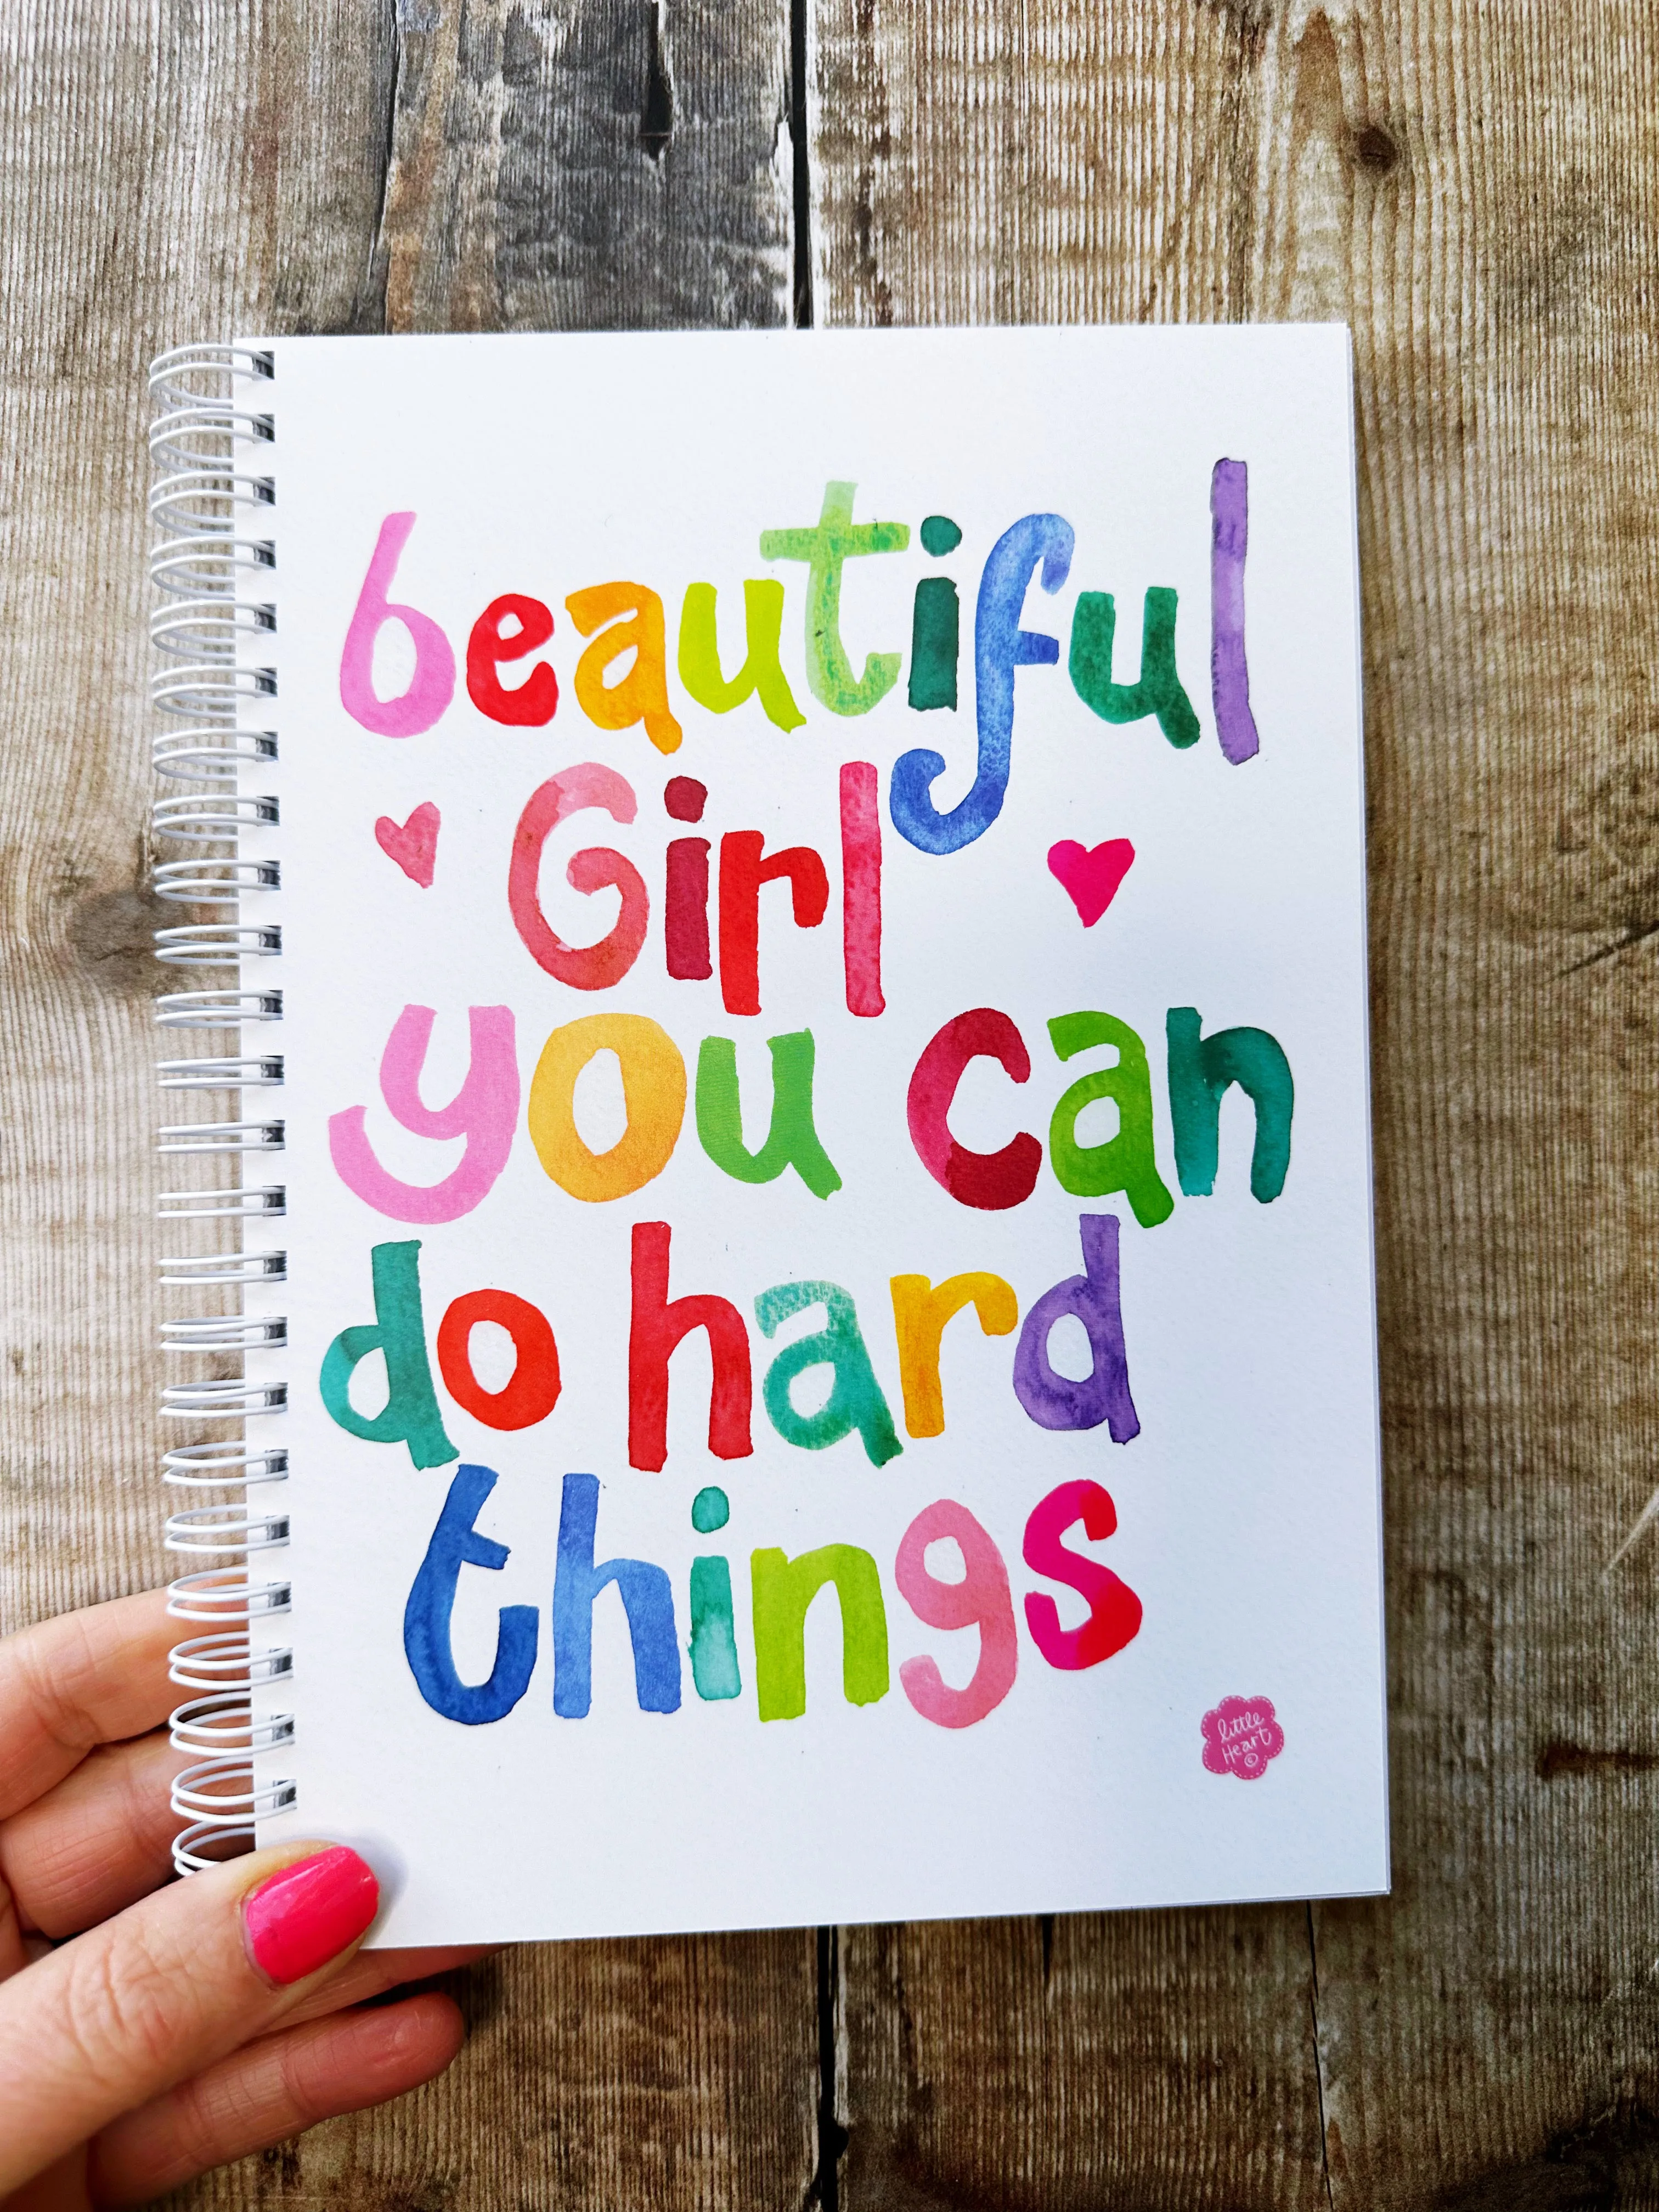 beautiful
Girl
you can
do hard
things
little
Heart
©